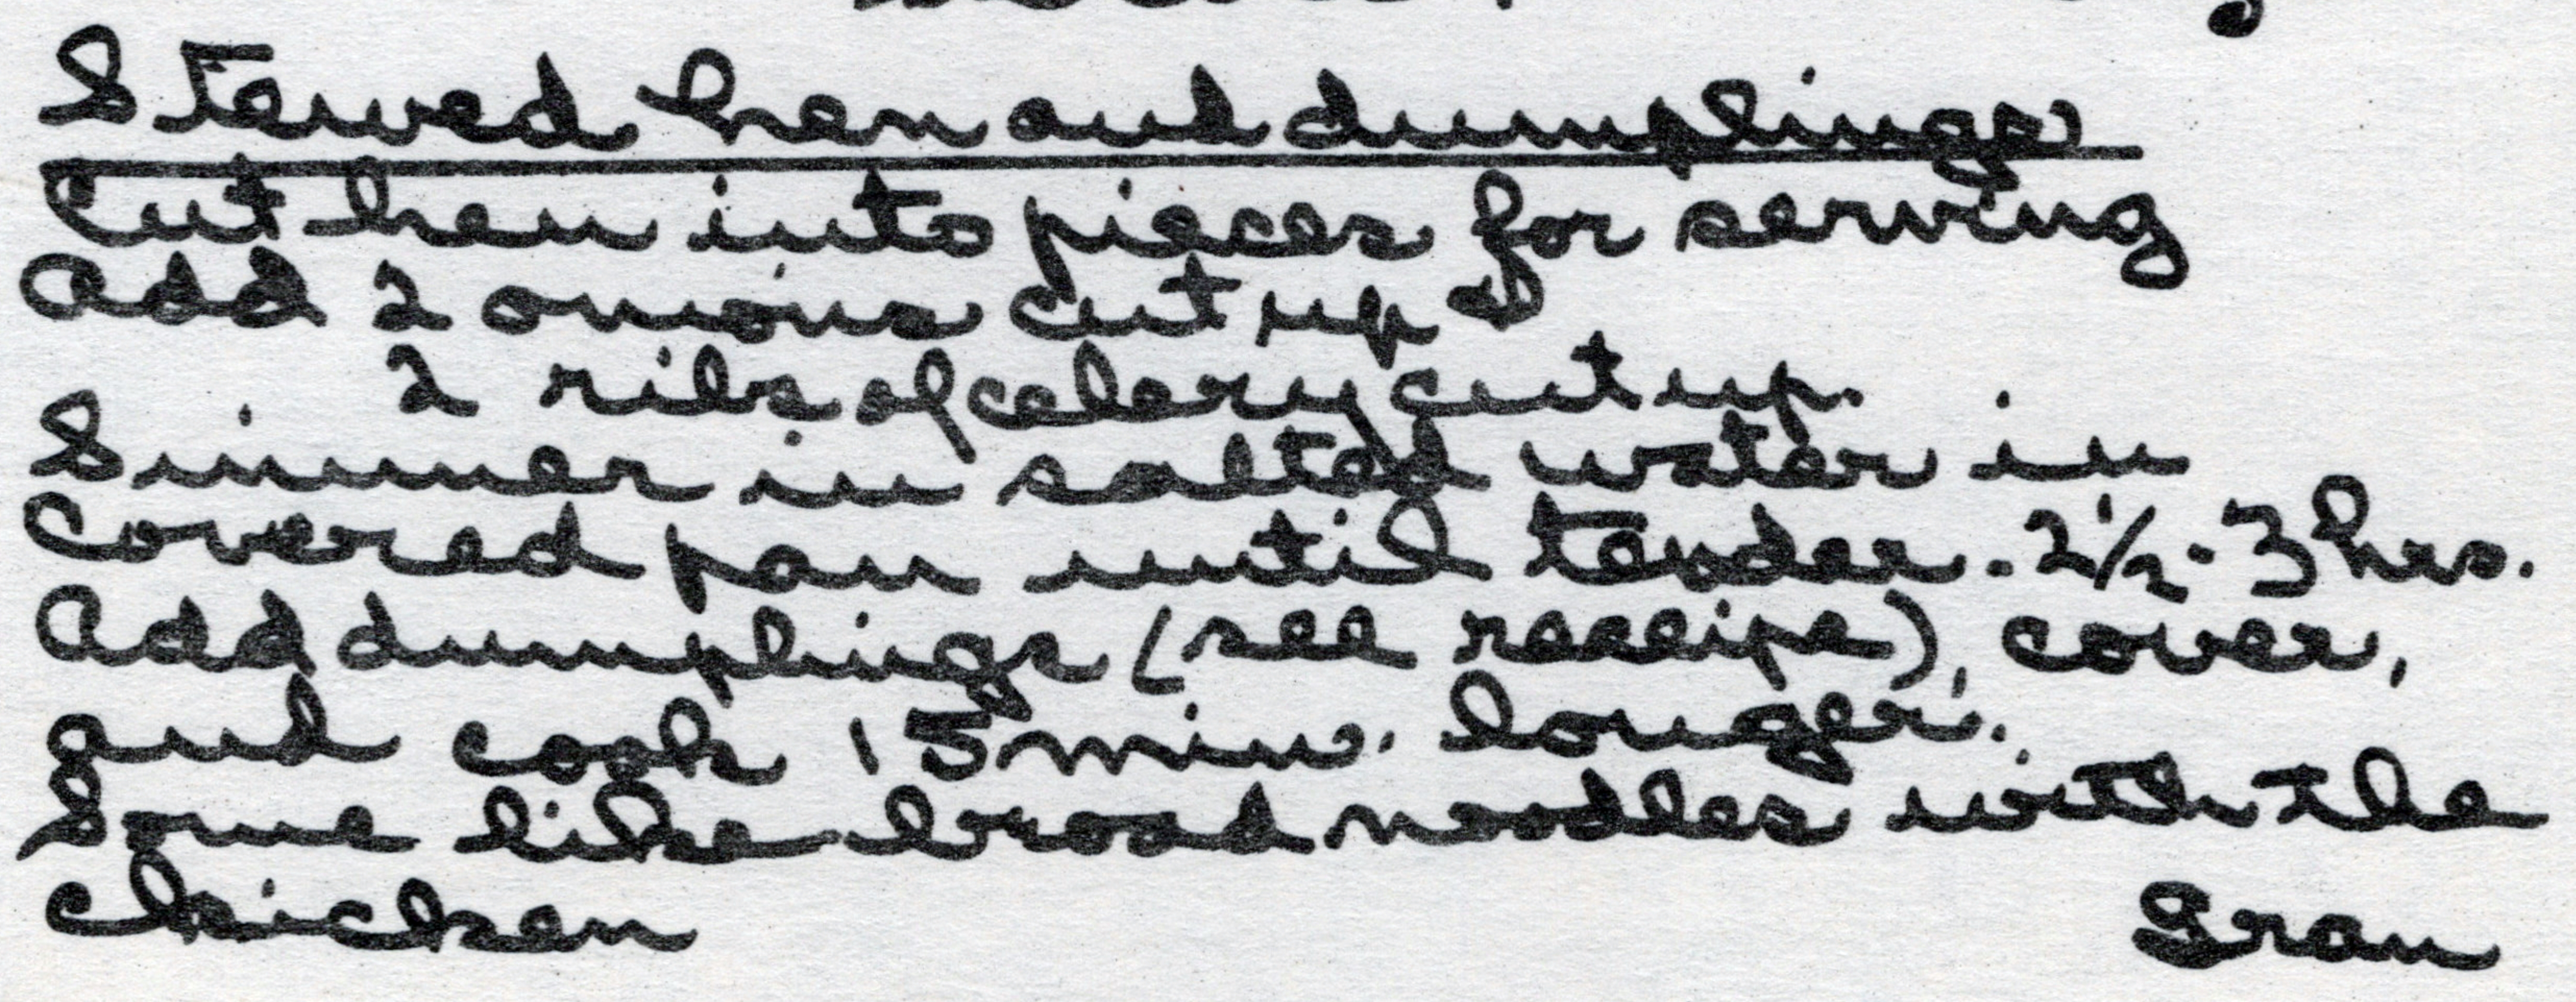 Stewed hen and dumplings
Cut hen into pieces for serving
Add 2 onions cut up &
2 ribs of celery cut up.
Simmer in salted water in
covered pan until tender. 2 1/2 - 3 hrs.
Add dumplings (see receipe), cover,
and cook 15 min. longer.
Some like broad noodles with the
chicken
Gran